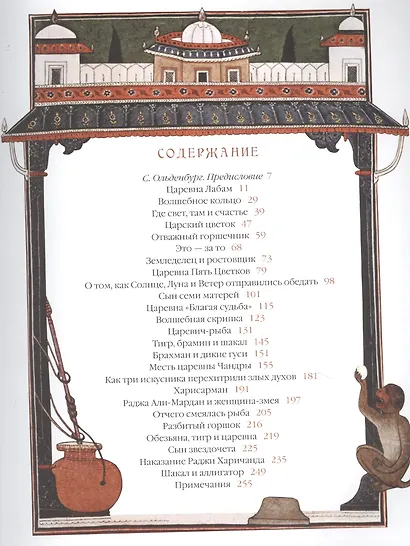 СОДЕРЖАНИЕ
С. Ольденбург. Предисловие 7
Царевна Лабам 11
Волшебное кольцо 29
Где свет, там и счастье 39
Царский цветок 47
Отважный горшечник 59
Это — за то 68
Земледелец и ростовщик 73
Царевна Пять Цветков 79
О том, как Солнце, Луна и Ветер отправились обедать 98
Сын семи матерей 101
Царевна «Благая судьба» 115
Волшебная скрипка 123
Царевич-рыба 131
Тигр, брамин и шакал 145
Брахман и дикие гуси 151
Месть царевны Чандры 155
Как три искусника перехитрили злых духов 181
Харисарман 191
Раджа Али-Мардан и женщина-змея 197
Отчего смеялась рыба 205
Разбитый горшок 216
Обезьяна, тигр и царевна 219
Сын звездочета 225
Наказание Раджи Харичанда 235
Шакал и аллигатор 249
Примечания 255